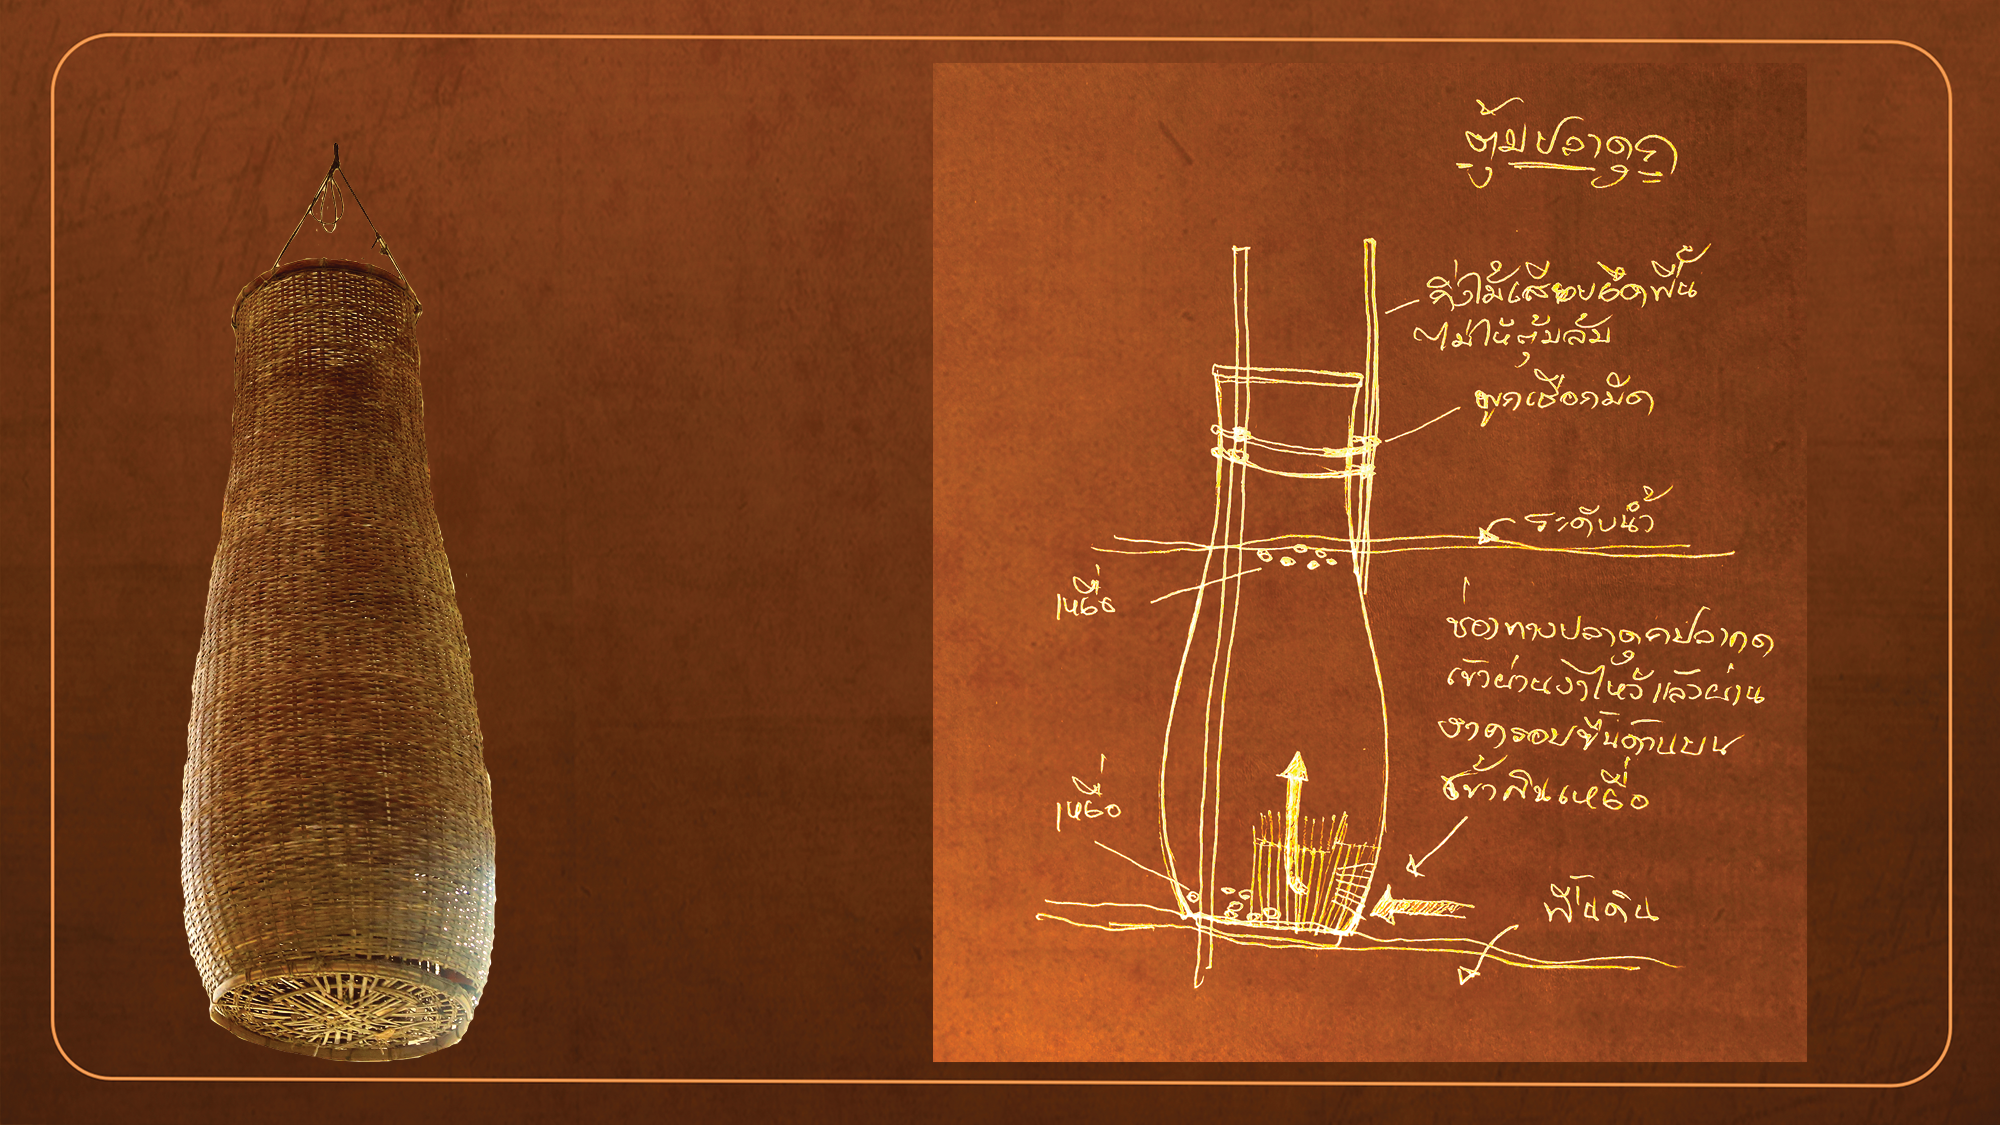 ตุ้มปลาดุก
กิ่งไม้เสียบยึดพื้น
ไม่ให้ตุ้มล้ม
ผูกเชือกมัด
ระดับน้ำ
เหยื่อ
ช่องทางปลาดุกปลากด
เข้าผ่านงาไหว้ แล้วผ่าน
งาครอบขึ้นด้านบน
เข้ากินเหยื่อ
เหยื่อ
พื้นดิน